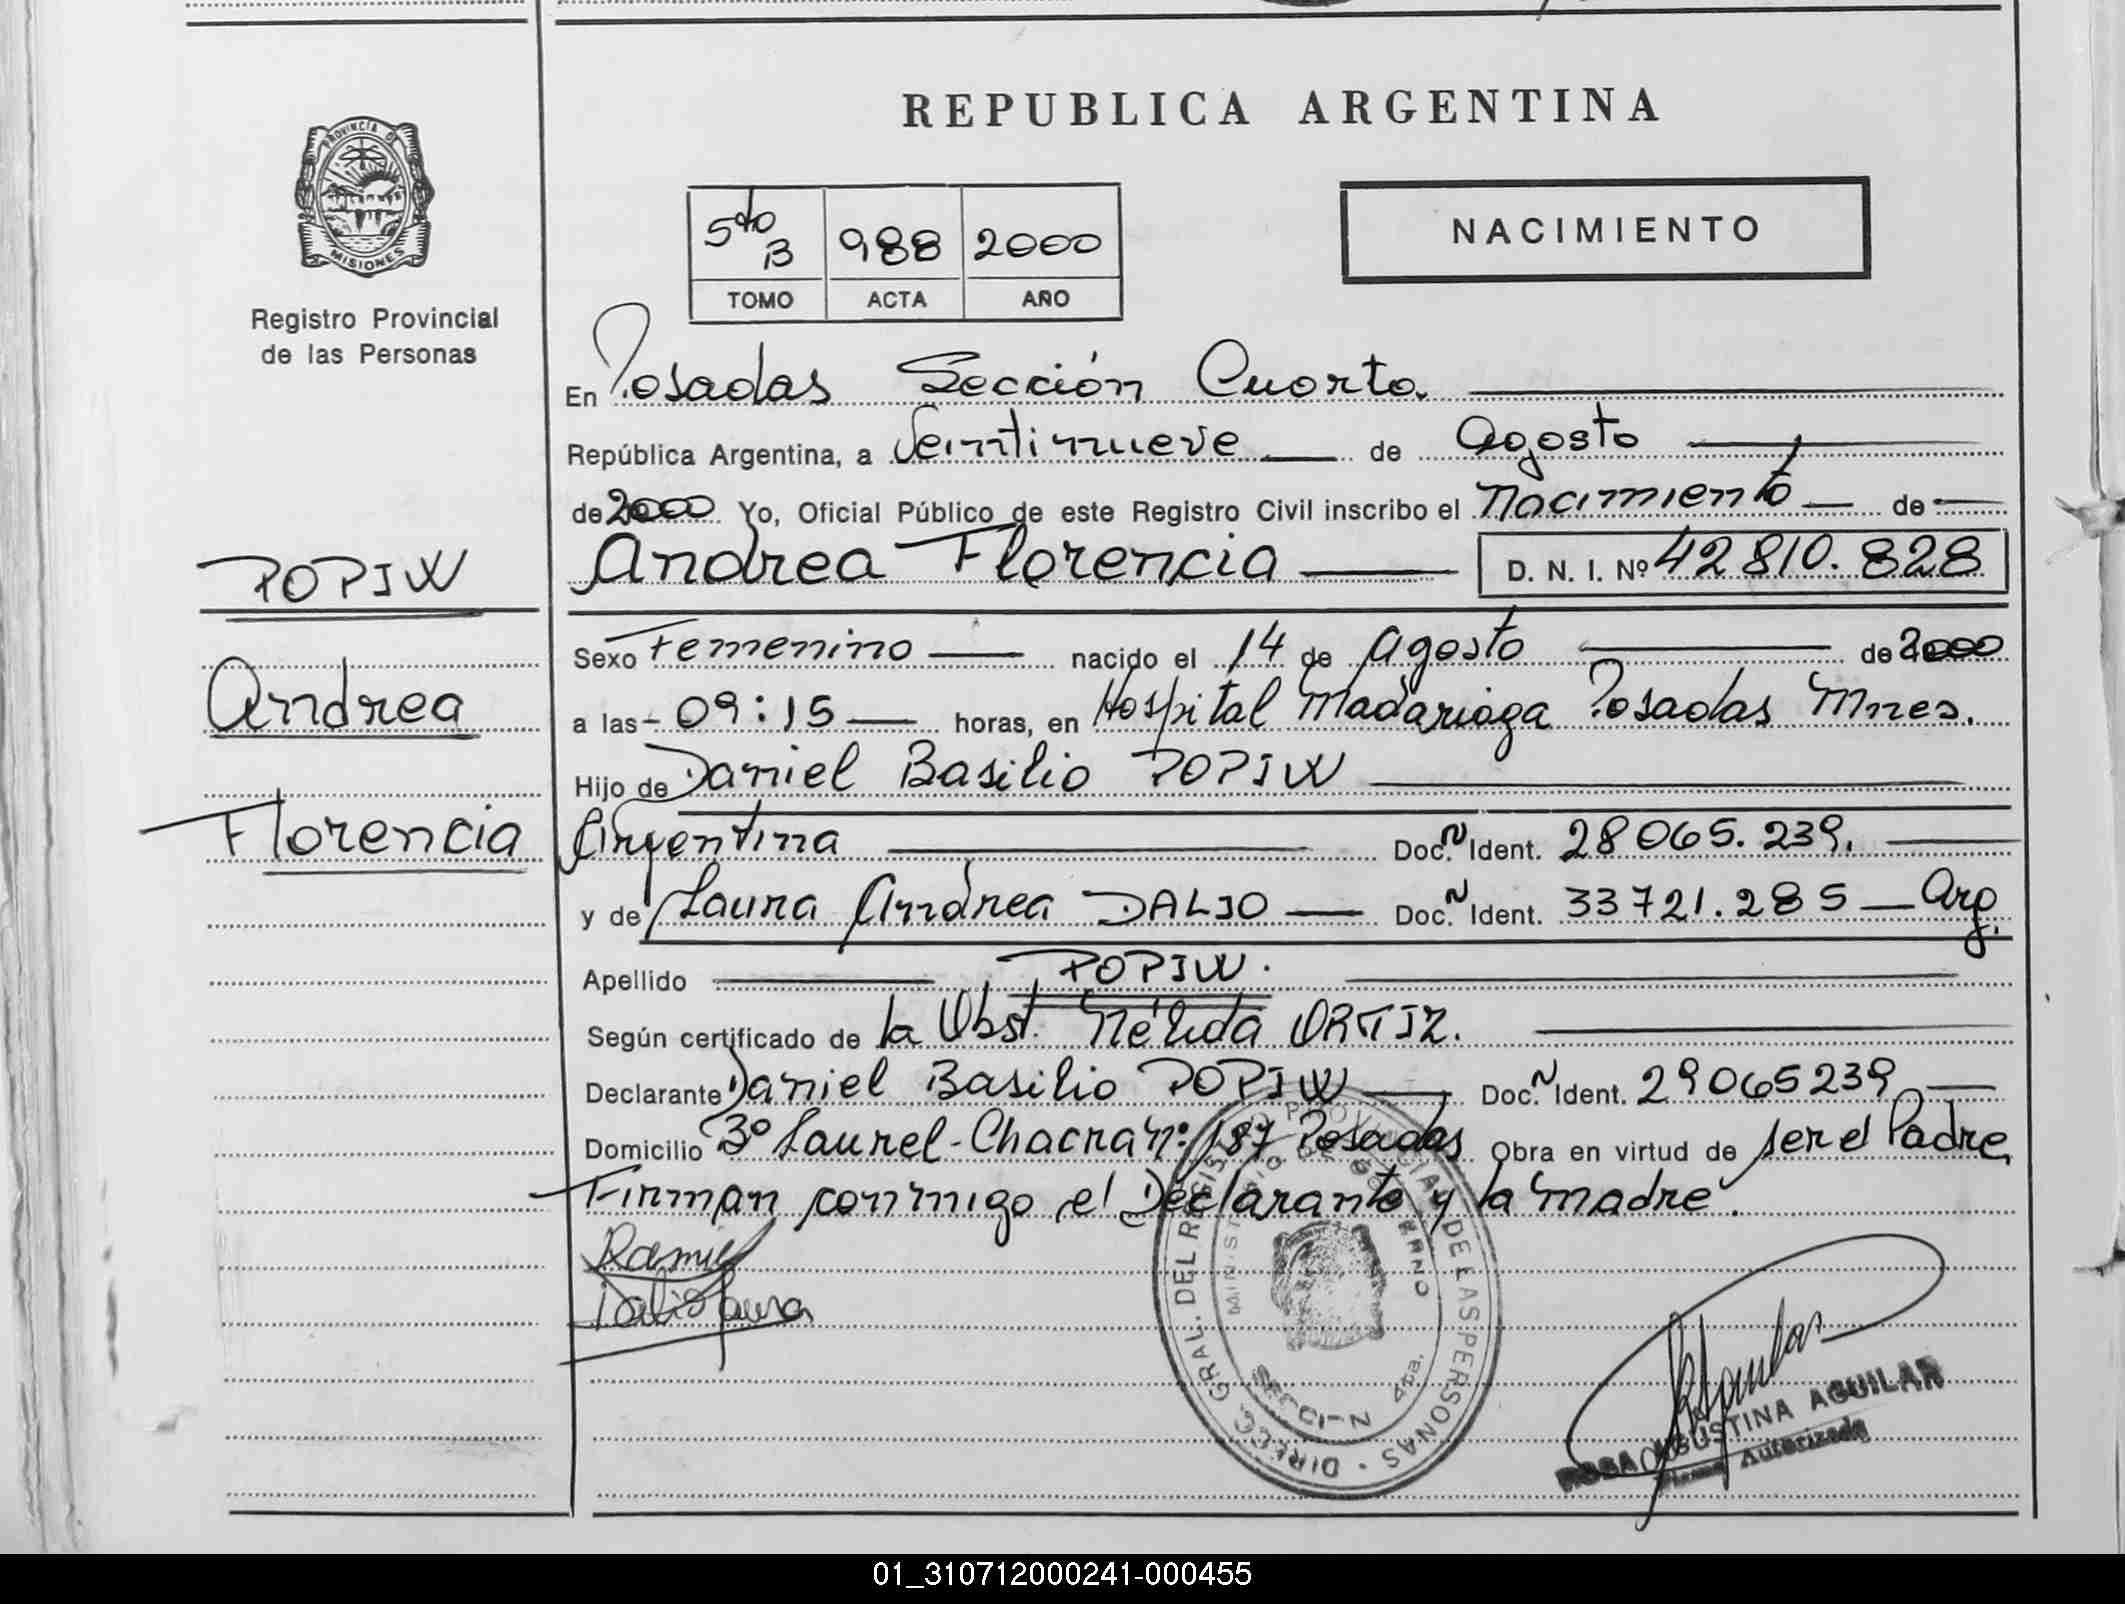 REPUBLICA ARGENTINA
PROVINCIA DE
MISIONES
Registro Provincial
de las Personas
5to B 988 2000
TOMO ACTA AÑO
NACIMIENTO
En Posadas Sección Cuarta
República Argentina, a Veintinueve de Agosto
de 2000 Yo, Oficial Público de este Registro Civil inscribo el Nacimiento de
Andrea Florencia D. N. I. Nº 42 810. 828
POPIW
Andrea
Florencia
Sexo Femenino nacido el 14 de Agosto de 2000
a las 09:15 horas, en Hospital Madariaga Posadas Mnes.
Hijo de Daniel Basilio POPIW
Argentina Doc. N Ident. 28 065. 239.
y de Laura Andrea DALIO Doc. N Ident. 33 721. 285 Arg.
Apellido POPIW.
Según certificado de la Obst. Nélida ORTIZ.
Declarante Daniel Basilio POPIW Doc. N Ident. 29065239
Domicilio Bº Laurel - Chacra Nº 187 Posadas Obra en virtud de ser el Padre
Firman conmigo el Declarante y la madre.
Laura
DIRECC. GRAL. DEL REGISTRO PROVINCIAL DE LAS PERSONAS
4ta.
ROSA AGUSTINA AGUILAR
Firma Autorizada
01_310712000241-000455